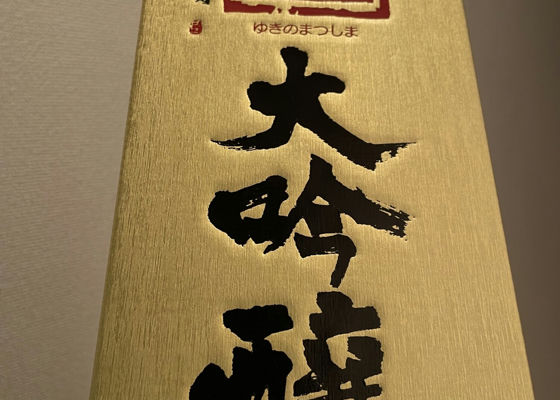 ゆきのまつしま
大吟醸